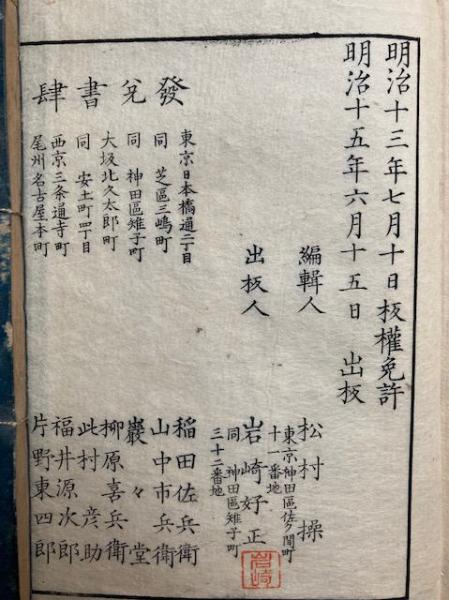 明治十三年七月十日板權免許
明治十五年六月十五日 出板
編輯人 松村操
東京神田區佐久間町
十一番地
出板人 岩崎好正
同 神田區雉子町
三十二番地
岩崎
發兌書肆
東京日本橋通二丁目 稲田佐兵衛
同 芝區三嶋町 山中市兵衛
同 神田區雉子町 巖々堂
大坂北久太郎町 柳原喜兵衛
同 安土町四丁目 此村彦助
西京三条通寺町 福井源次郎
尾州名古屋本町 片野東四郎